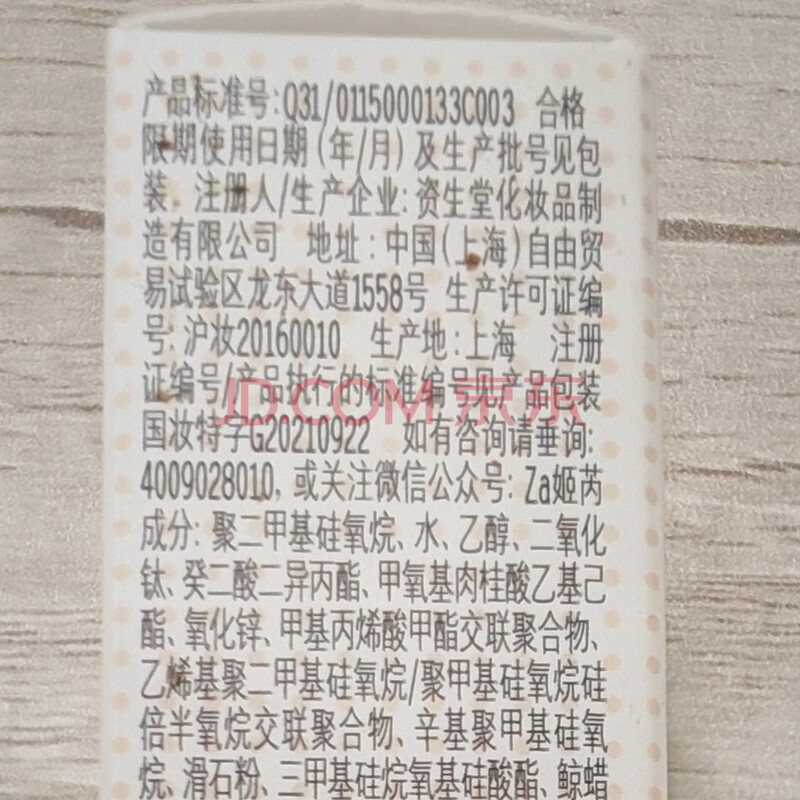 产品标准号:Q31/0115000133C003 合格
限期使用日期(年/月)及生产批号见包
装. 注册人/生产企业:资生堂化妆品制
造有限公司 地址:中国(上海)自由贸
易试验区龙东大道1558号 生产许可证编
号:沪妆20160010 生产地:上海 注册
证编号/产品执行的标准编号见产品包装
JD.COM 京东
国妆特字G20210922 如有咨询请垂询:
4009028010,或关注微信公众号:Za姬芮
成分:聚二甲基硅氧烷、水、乙醇、二氧化
钛、癸二酸二异丙酯、甲氧基肉桂酸乙基己
酯、氧化锌、甲基丙烯酸甲酯交联聚合物、
乙烯基聚二甲基硅氧烷/聚甲基硅氧烷硅
倍半氧烷交联聚合物、辛基聚甲基硅氧
烷、滑石粉、三甲基硅烷氧基硅酸酯、鲸蜡